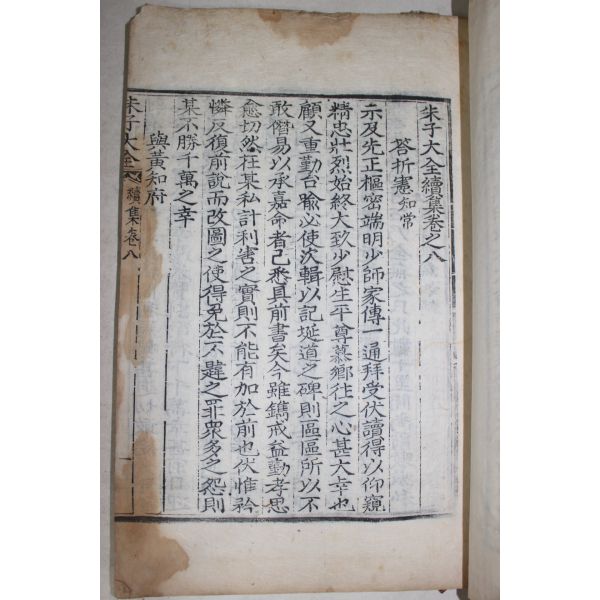 朱子大全續集卷之八
答折憲知常
示及先正樞密端明少師家傳一通拜受伏讀得以仰窺
精忠壯烈始終大致少慰生平尊慕鄕徃之心甚大幸也
顧又重勤台喩必使次輯以記埏道之碑則區區所以不
敢僭易以承嘉命者已悉具前書矣今雖鐫戒益勤孝思
愈切然在某私計利害之實則不能有加於前也伏惟矜
憐反復前說而改圖之使得免於不韙之罪衆多之怨則
某不勝千萬之幸
與黃知府
朱子大全 續集卷八